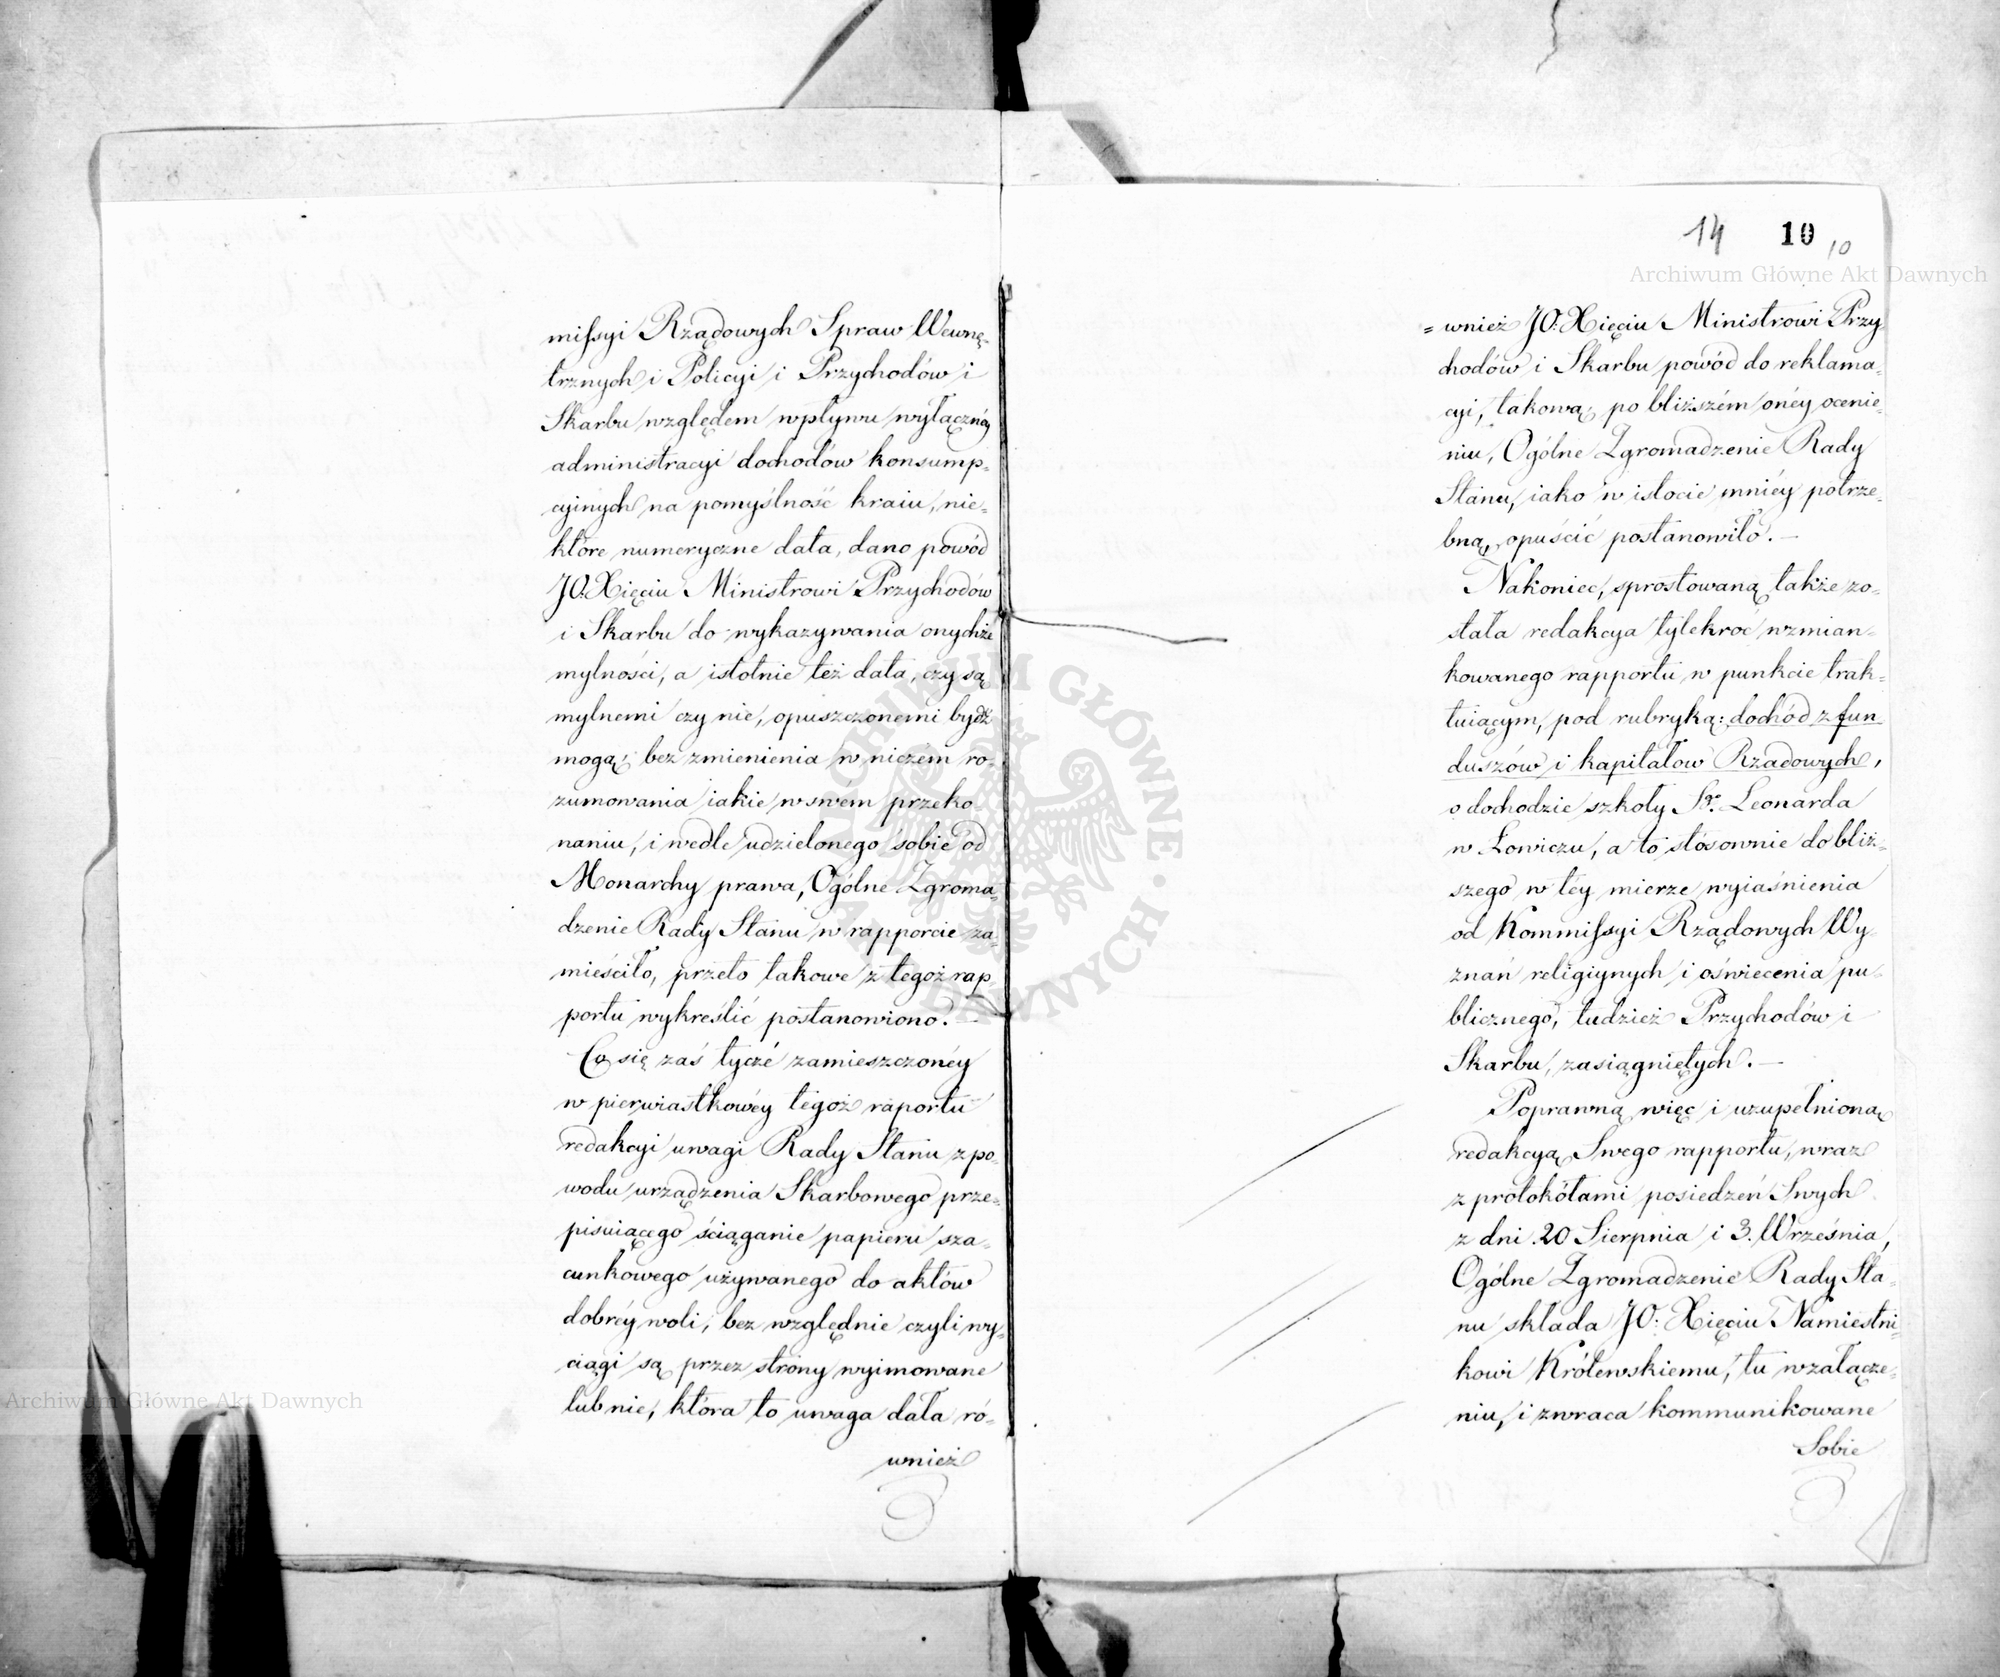 missyi Rządowych Spraw Wewnę-
trznych i Policyi i Przychodów i
Skarbu względem wpływu wyłącznéy
administracyi dochodów konsump-
cyinych na pomyślność kraiu, nie-
które numeryczne data, dano powód
JO: Xięciu Ministrowi Przychodów
i Skarbu do wykazywania onychże
mylności, a istotnie też data, czy są
mylnemi czy nie, opuszczonemi bydź
mogą, bez zmienienia w niczém ro-
zumowania iakie w swem przeko
naniu, i wedle udzielonego sobie od
Monarchy prawa, Ogólne Zgroma-
dzenie Rady Stanu w rapporcie za-
mieściło, przeto takowe z tegoż rap
portu wykreślić postanowiono. —
Co się zaś tycze zamieszczonéy
w pierwiastkowéy tegoż raportu
redakcyi uwagi Rady Stanu z po-
wodu urządzenia Skarbowego prze-
pisuiącego ściąganie papieru sza-
cunkowego używanego do aktów
dobréy woli, bez względnie czyli wy-
ciągi są przez strony wyimowane
lub nie, która to uwaga dała ró-
wnież
14 10 10
Archiwum Główne Akt Dawnych
= wnież JO: Xięciu Ministrowi Przy
chodów i Skarbu powód do reklama-
cyi, takową po bliższém onéy ocenie-
niu, Ogólne Zgromadzenie Rady
Stanu, iako w istocie mniéy potrze-
bną, opuścić postanowiło. —
Nakoniec, sprostowaną także zo-
stała redakcya tylekroć wzmian-
kowanego rapportu w punkcie trak-
tuiącym, pod rubryką: dochód z fun
duszów i kapitałów Rządowych,
o dochodzie szkoły Sgo Leonarda
w Łowiczu, a to stósownie do bliż-
szego w téy mierze wyiaśnienia
od Kommissyi Rządowych Wy-
znań religiynych i oświecenia pu-
blicznego, tudzież Przychodów i
Skarbu, zasiągniętych. —
Poprawną więc i uzupełnioną
redakcyą Swego rapportu, wraz
z protokółami posiedzeń Swych
z dni 20 Sierpnia i 3. Września,
Ogólne Zgromadzenie Rady Sta-
nu składa JO: Xięciu Namiestni-
kowi Królewskiemu, tu w załącze-
niu, i zwraca kommunikowane
Sobie
Archiwum Główne Akt Dawnych
ARCHIWUM GŁÓWNE AKT DAWNYCH